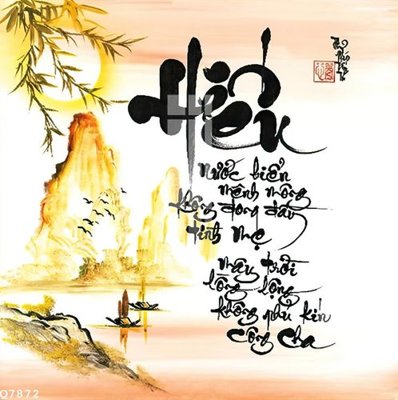 Hiếu
nước biển
mênh mông
không đong đầy
tình mẹ
mây trời
lồng lộng
không phủ kín
công cha
07872